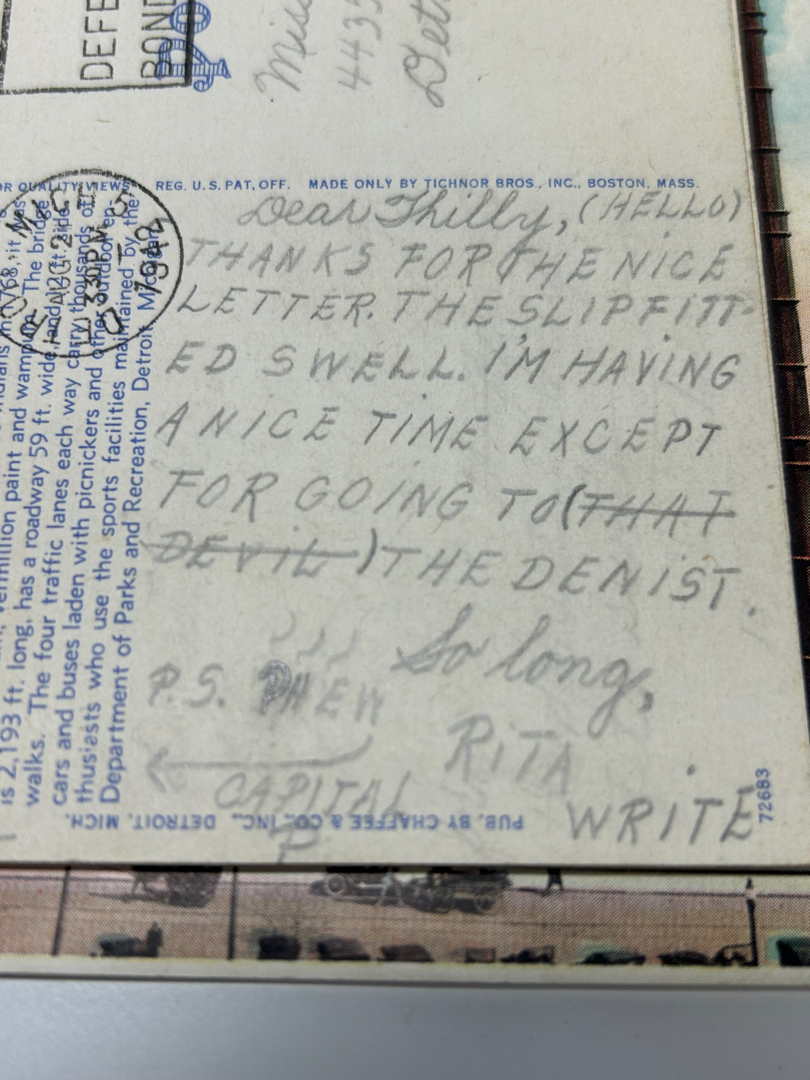 DEFE
BOND
Miss
4435
Det
OR QUALITY VIEWS REG. U.S. PAT. OFF. MADE ONLY BY TICHNOR BROS., INC., BOSTON, MASS.
AUG 2
330PM
1942
Dear Thilly, (HELLO)
THANKS FOR THE NICE
LETTER. THE SLIP FITT-
ED SWELL. I'M HAVING
A NICE TIME EXCEPT
FOR GOING TO (THAT
DEVIL) THE DENIST.
So long,
RITA
P.S. PHEW
CAPITAL
P
WRITE
1768, it was
vermillion paint and wampum. The bridge
is 2,193 ft. long, has a roadway 59 ft. wide, and
walks. The four traffic lanes each way carry thousands of
cars and buses laden with picnickers and other outdoor en-
thusiasts who use the sports facilities maintained by the
Department of Parks and Recreation, Detroit, Michigan.
PUB. BY CHAFFEE & CO., INC., DETROIT, MICH.
72683